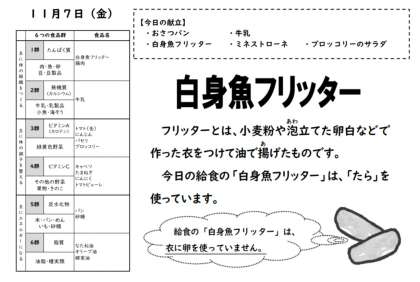 １１月７日（金）
６つの食品群
食品名
主に体の組織をつくる
1群
たんぱく質
肉・魚・卵
豆・豆製品
白身魚フリッター
鶏肉
2群
無機質
(カルシウム)
牛乳・乳製品
小魚・海そう
牛乳
主に体の調子を整える
3群
ビタミンA
(カロテン)
緑黄色野菜
トマト(缶)
にんじん
パセリ
ブロッコリー
4群
ビタミンC
その他の野菜
果物・きのこ
キャベツ
たまねぎ
にんにく
トマトピューレ
主にエネルギーになる
5群
炭水化物
米・パン・めん
いも・砂糖
パン
砂糖
6群
脂質
油脂・種実類
なたね油
オリーブ油
綿実油
【今日の献立】
・おさつパン ・牛乳
・白身魚フリッター ・ミネストローネ ・ブロッコリーのサラダ
白身魚フリッター
フリッターとは、小麦粉や泡立てた卵白などで
あわ
作った衣をつけて油で揚げたものです。
あ
今日の給食の「白身魚フリッター」は、「たら」を
使っています。
給食の「白身魚フリッター」は、
衣に卵を使っていません。